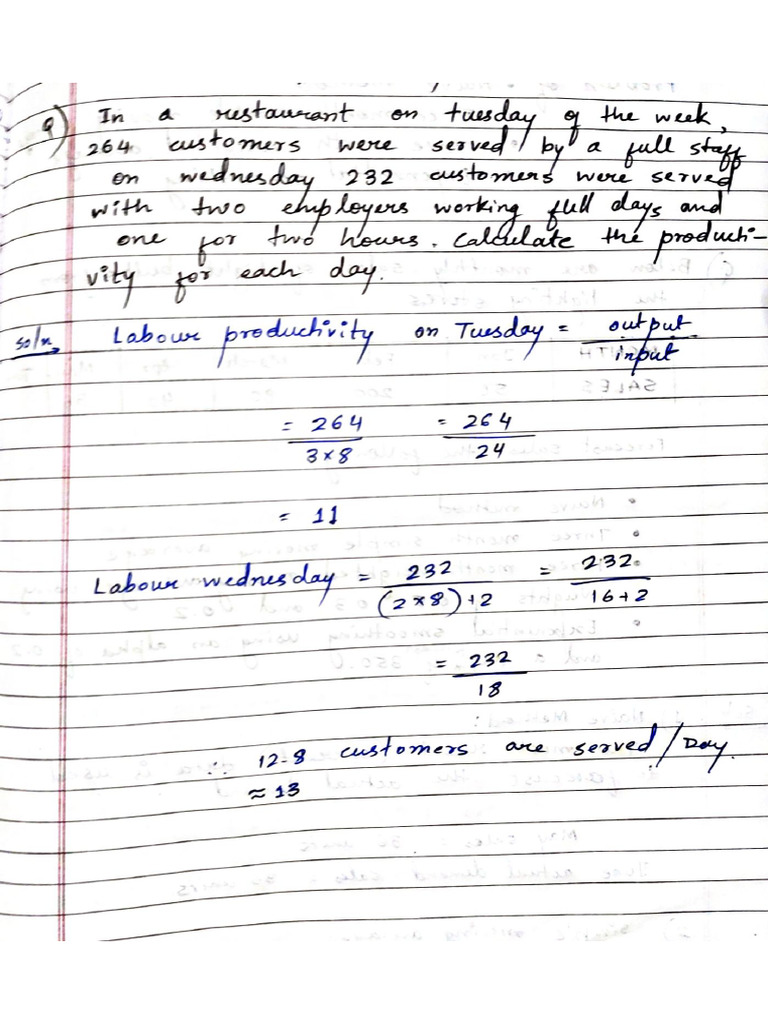 9) In a restaurant on tuesday of the week,
264 customers were served by a full staff
on wednesday 232 customers were served
with two employers working full days and
one for two hours. Calculate the producti-
vity for each day.
soln Labour productivity on Tuesday = output/input
= 264/3×8 = 264/24
= 11
Labour wednesday = 232/(2×8)+2 = 232/16+2
= 232/18
∴ 12.8 customers are served/Day.
≈ 13